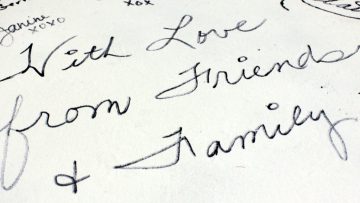 Janine
xoxo
xox
With Love
from Friends
& Family